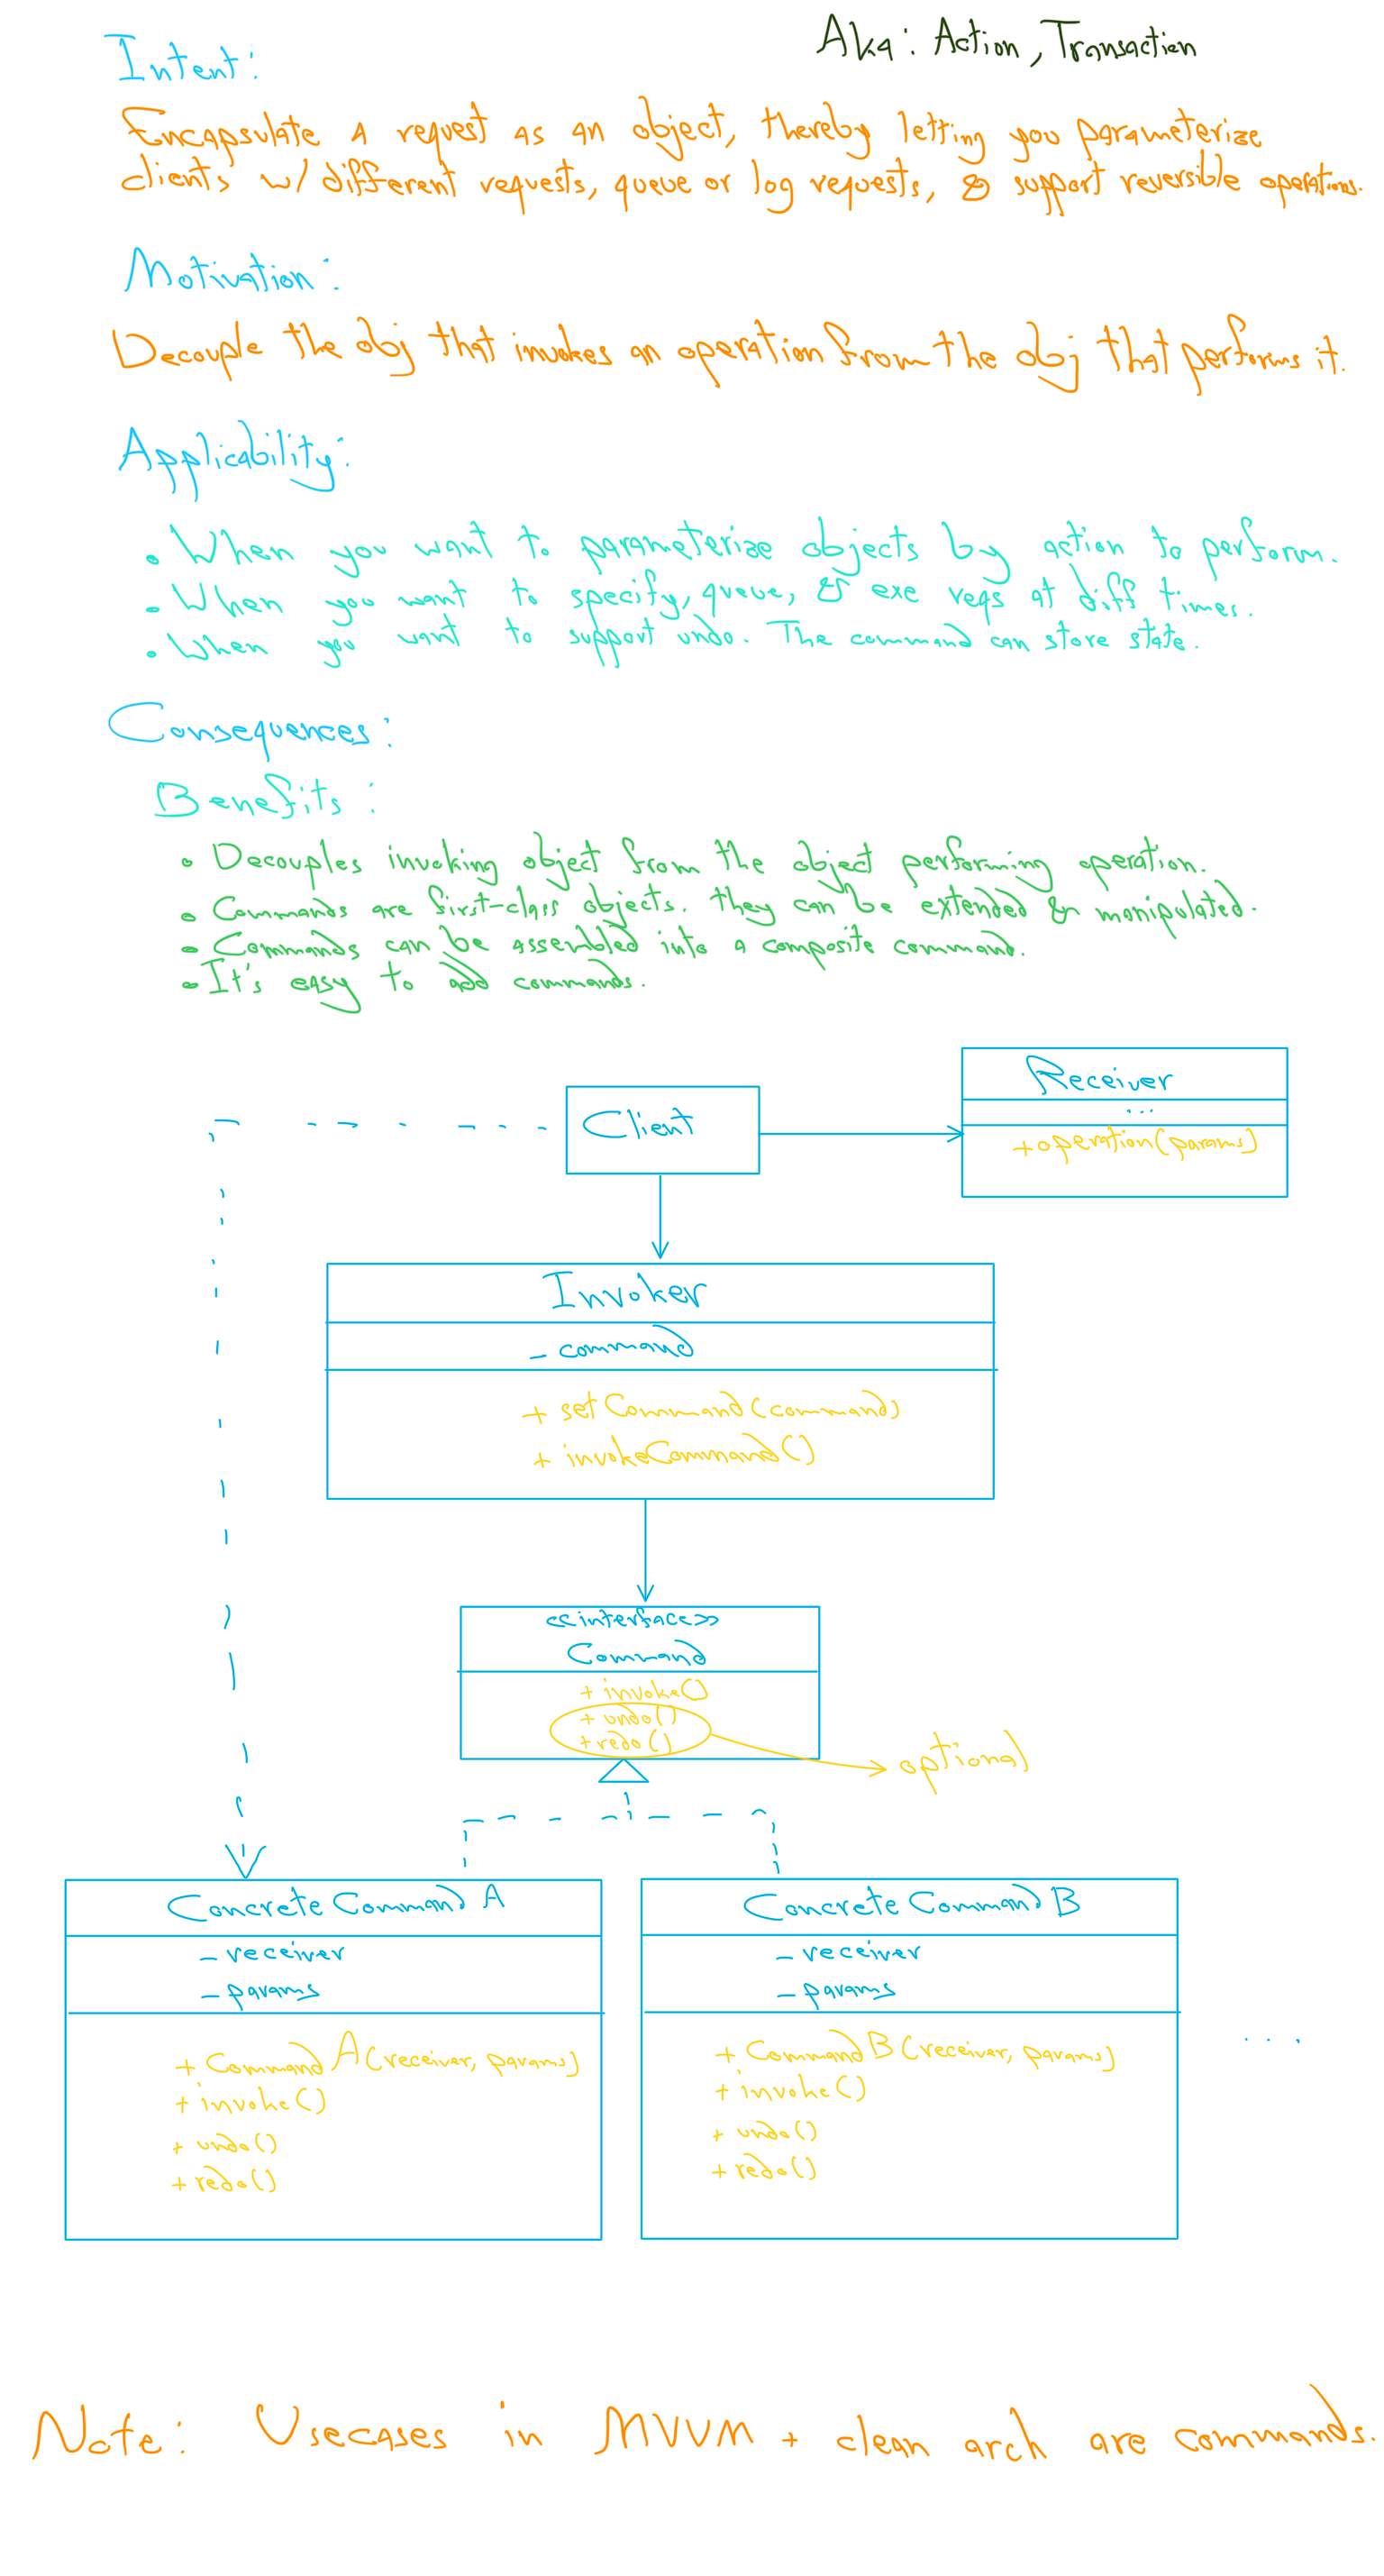 Aka: Action, Transaction
Intent:
Encapsulate a request as an object, thereby letting you parameterize
clients w/ different requests, queue or log requests, & support reversible operations.
Motivation:
Decouple the obj that invokes an operation from the obj that performs it.
Applicability:
• When you want to parameterize objects by action to perform.
• When you want to specify, queue, & exe reqs at diff times.
• When you want to support undo. The command can store state.
Consequences:
Benefits:
• Decouples invoking object from the object performing operation.
• Commands are first-class objects. they can be extended & manipulated.
• Commands can be assembled into a composite command.
• It's easy to add commands.
Receiver
...
+operation(params)
Client
Invoker
- command
+ setCommand(command)
+ invokeCommand()
<<interface>>
Command
+ invoke()
+ undo()
+ redo()
optional
Concrete Command A
- receiver
- params
+ Command A (receiver, params)
+ invoke()
+ undo()
+ redo()
Concrete Command B
- receiver
- params
+ Command B (receiver, params)
+ invoke()
+ undo()
+ redo()
....
Note: Usecases in MVVM + clean arch are commands.